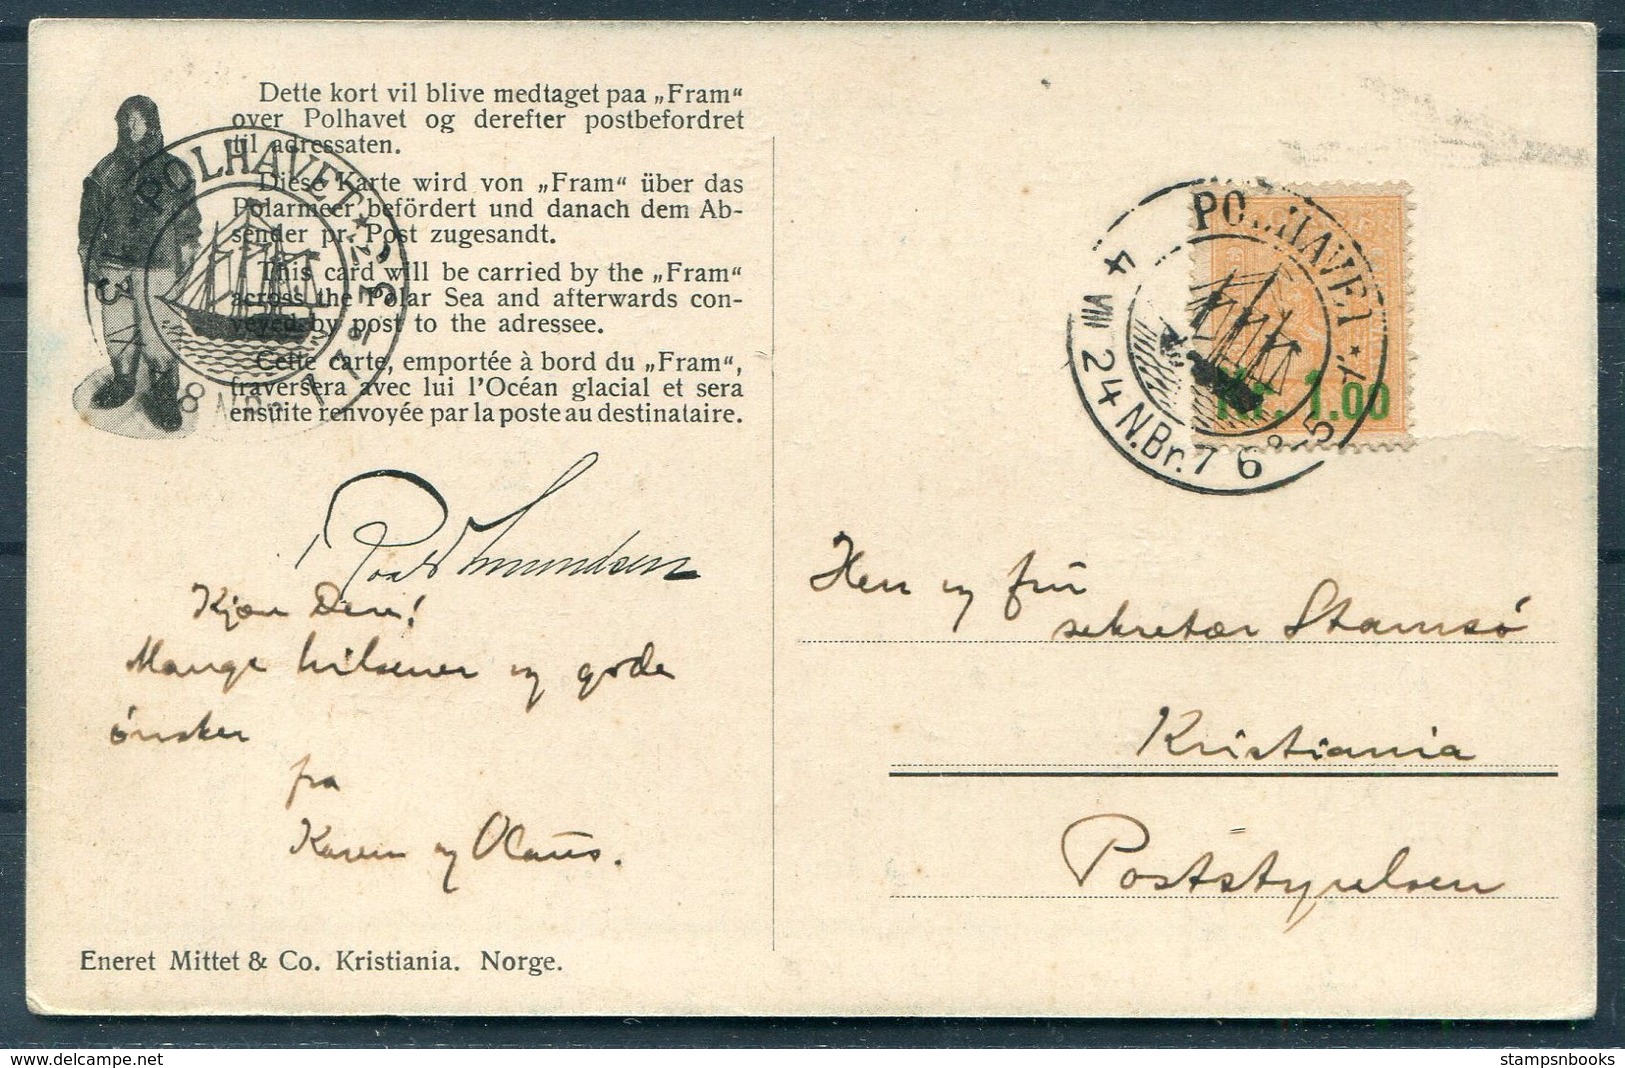 Dette kort vil blive medtaget paa „Fram“
over Polhavet og derefter postbefordret
til adressaten.
Diese Karte wird von „Fram“ über das
Polarmeer befördert und danach dem Ab-
sender pr. Post zugesandt.
This card will be carried by the „Fram“
across the Polar Sea and afterwards con-
veyed by post to the adressee.
Cette carte, emportée à bord du „Fram“,
traversera avec lui l'Océan glacial et sera
ensuite renvoyée par la poste au destinataire.
POLHAVET
POLHAVET
4 VIII 24 N.Br. 76
Kr. 1.00
Roald Amundsen
Kjære Dere!
Mange hilsener og gode
ønsker
fra
Karen og Olaus.
Herr og fru
sekretær Stamsö
Kristiania
Poststyrelsen
Eneret Mittet & Co. Kristiania. Norge.
stampsnbooks
www.delcampe.net